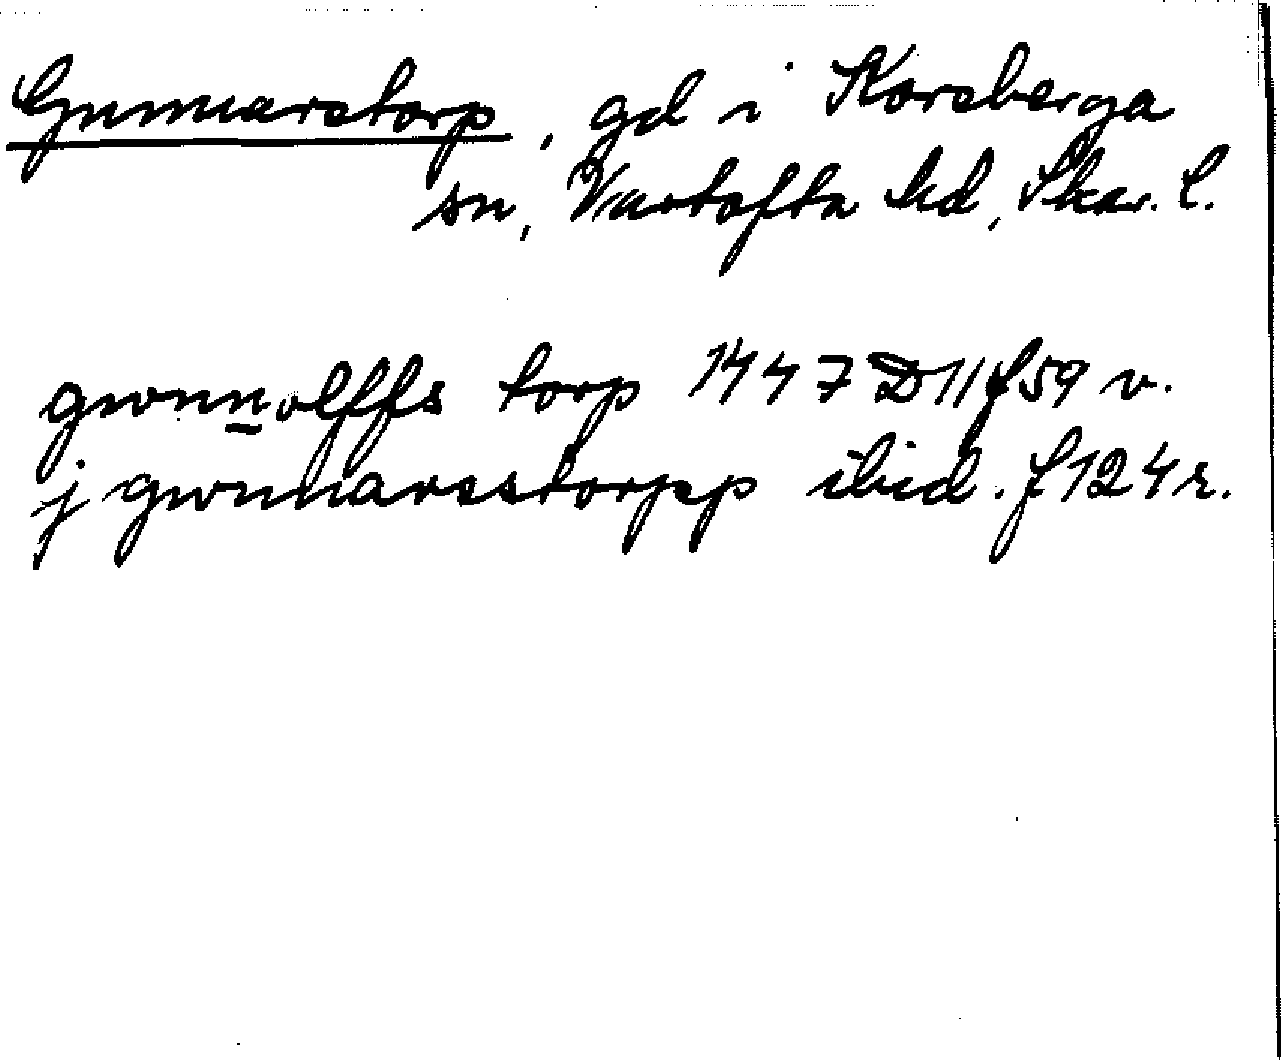 Gunnarstorp, gd i Korsberga
sn, Vartofta hd, Skar. l.
gwnnolffs torp 1447 D11 f 59 v.
j gwnnarsstorpp ibid. f 124 r.